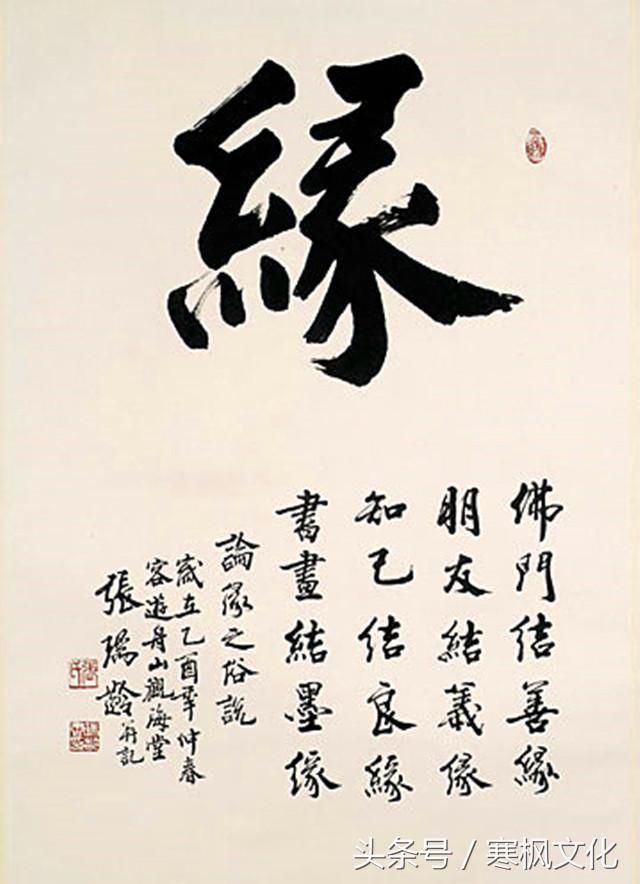 緣
佛門结善緣
朋友結義缘
知己结良緣
書畫結墨缘
論緣之俗說
歲在乙酉年仲春
客遊舟山觀海堂
張瑞齡并記
头条号 / 寒枫文化